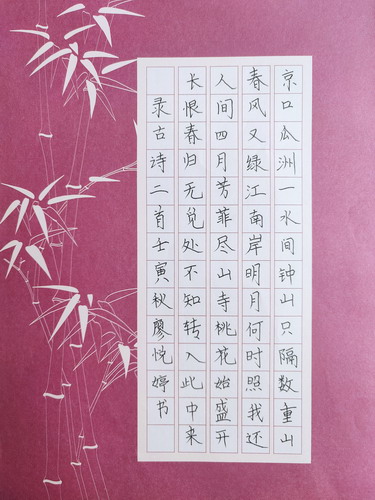 京口瓜洲一水间钟山只隔数重山
春风又绿江南岸明月何时照我还
人间四月芳菲尽山寺桃花始盛开
长恨春归无觅处不知转入此中来
录古诗二首壬寅秋廖悦婷书